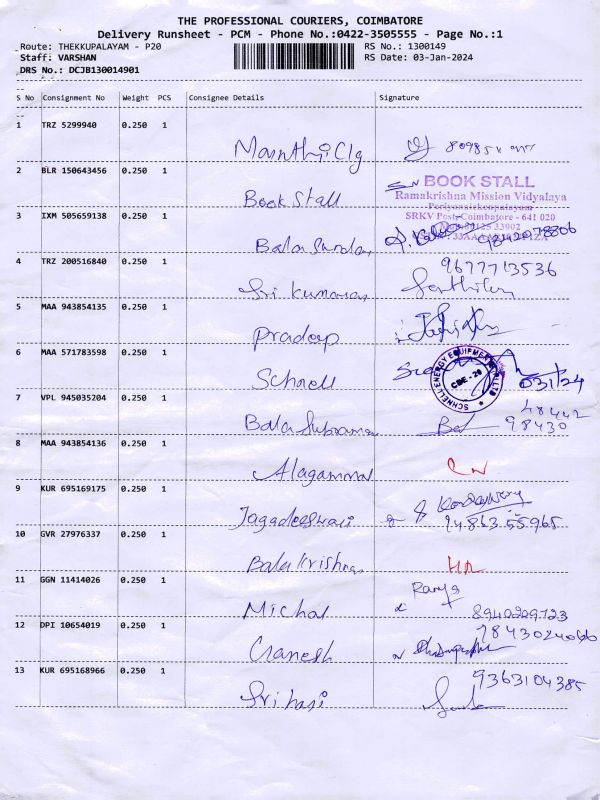 THE PROFESSIONAL COURIERS, COIMBATORE
Delivery Runsheet - PCM - Phone No.:0422-3505555 - Page No.:1
Route: THEKKUPALAYAM - P20 RS No.: 1300149
Staff: VARSHAN RS Date: 03-Jan-2024
DRS No.: DCJB130014901
S No Consignment No Weight PCS Consignee Details Signature
1 TRZ 5299940 0.250 1
Marnthi Clg
2 BLR 150643456 0.250 1
Book Stall
BOOK STALL
Ramakrishna Mission Vidyalaya
Periyanaickenpalayam
SRKV Post, Coimbatore - 641 020
3 IXM 505659138 0.250 1
Bala Sundar 9842078806
4 TRZ 200516840 0.250 1
9677713536
Sri kumaran Senthil
5 MAA 943854135 0.250 1
Pradeep
6 MAA 571783598 0.250 1
Schnell
SCHNELL ENERGY EQUIPMENTS
CBE - 20
03/1/24
7 VPL 945035204 0.250 1
48442
98430
Bala Subrama Bal
8 MAA 943854136 0.250 1
Alagammal
9 KUR 695169175 0.250 1
Jagadeeswari 94863.55965
10 GVR 27976337 0.250 1
Bala Krishna
11 GGN 11414026 0.250 1
Ramya
Michal 8940209723
12 DPI 10654019 0.250 1
7843024066
Ganesh
13 KUR 695168966 0.250 1
9363104385
Sri hari